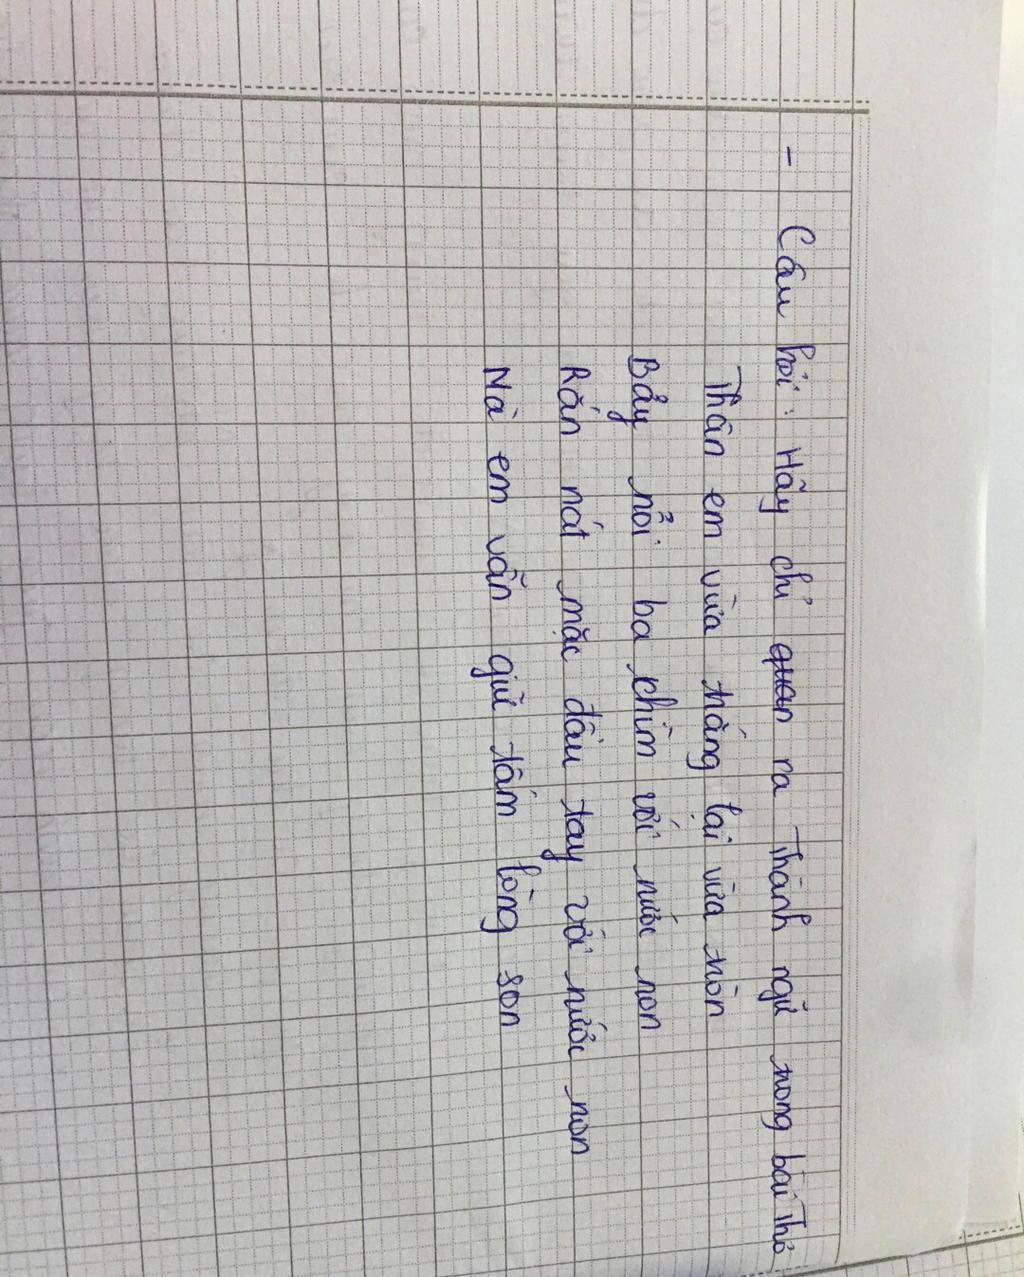 - Câu hỏi: Hãy chỉ quan ra Thành ngữ trong bài Thơ
Thân em vừa trắng lại vừa tròn
Bảy nổi ba chìm với nước non
Rắn nát mặc dầu tay với nước non
Mà em vẫn giữ tấm lòng son